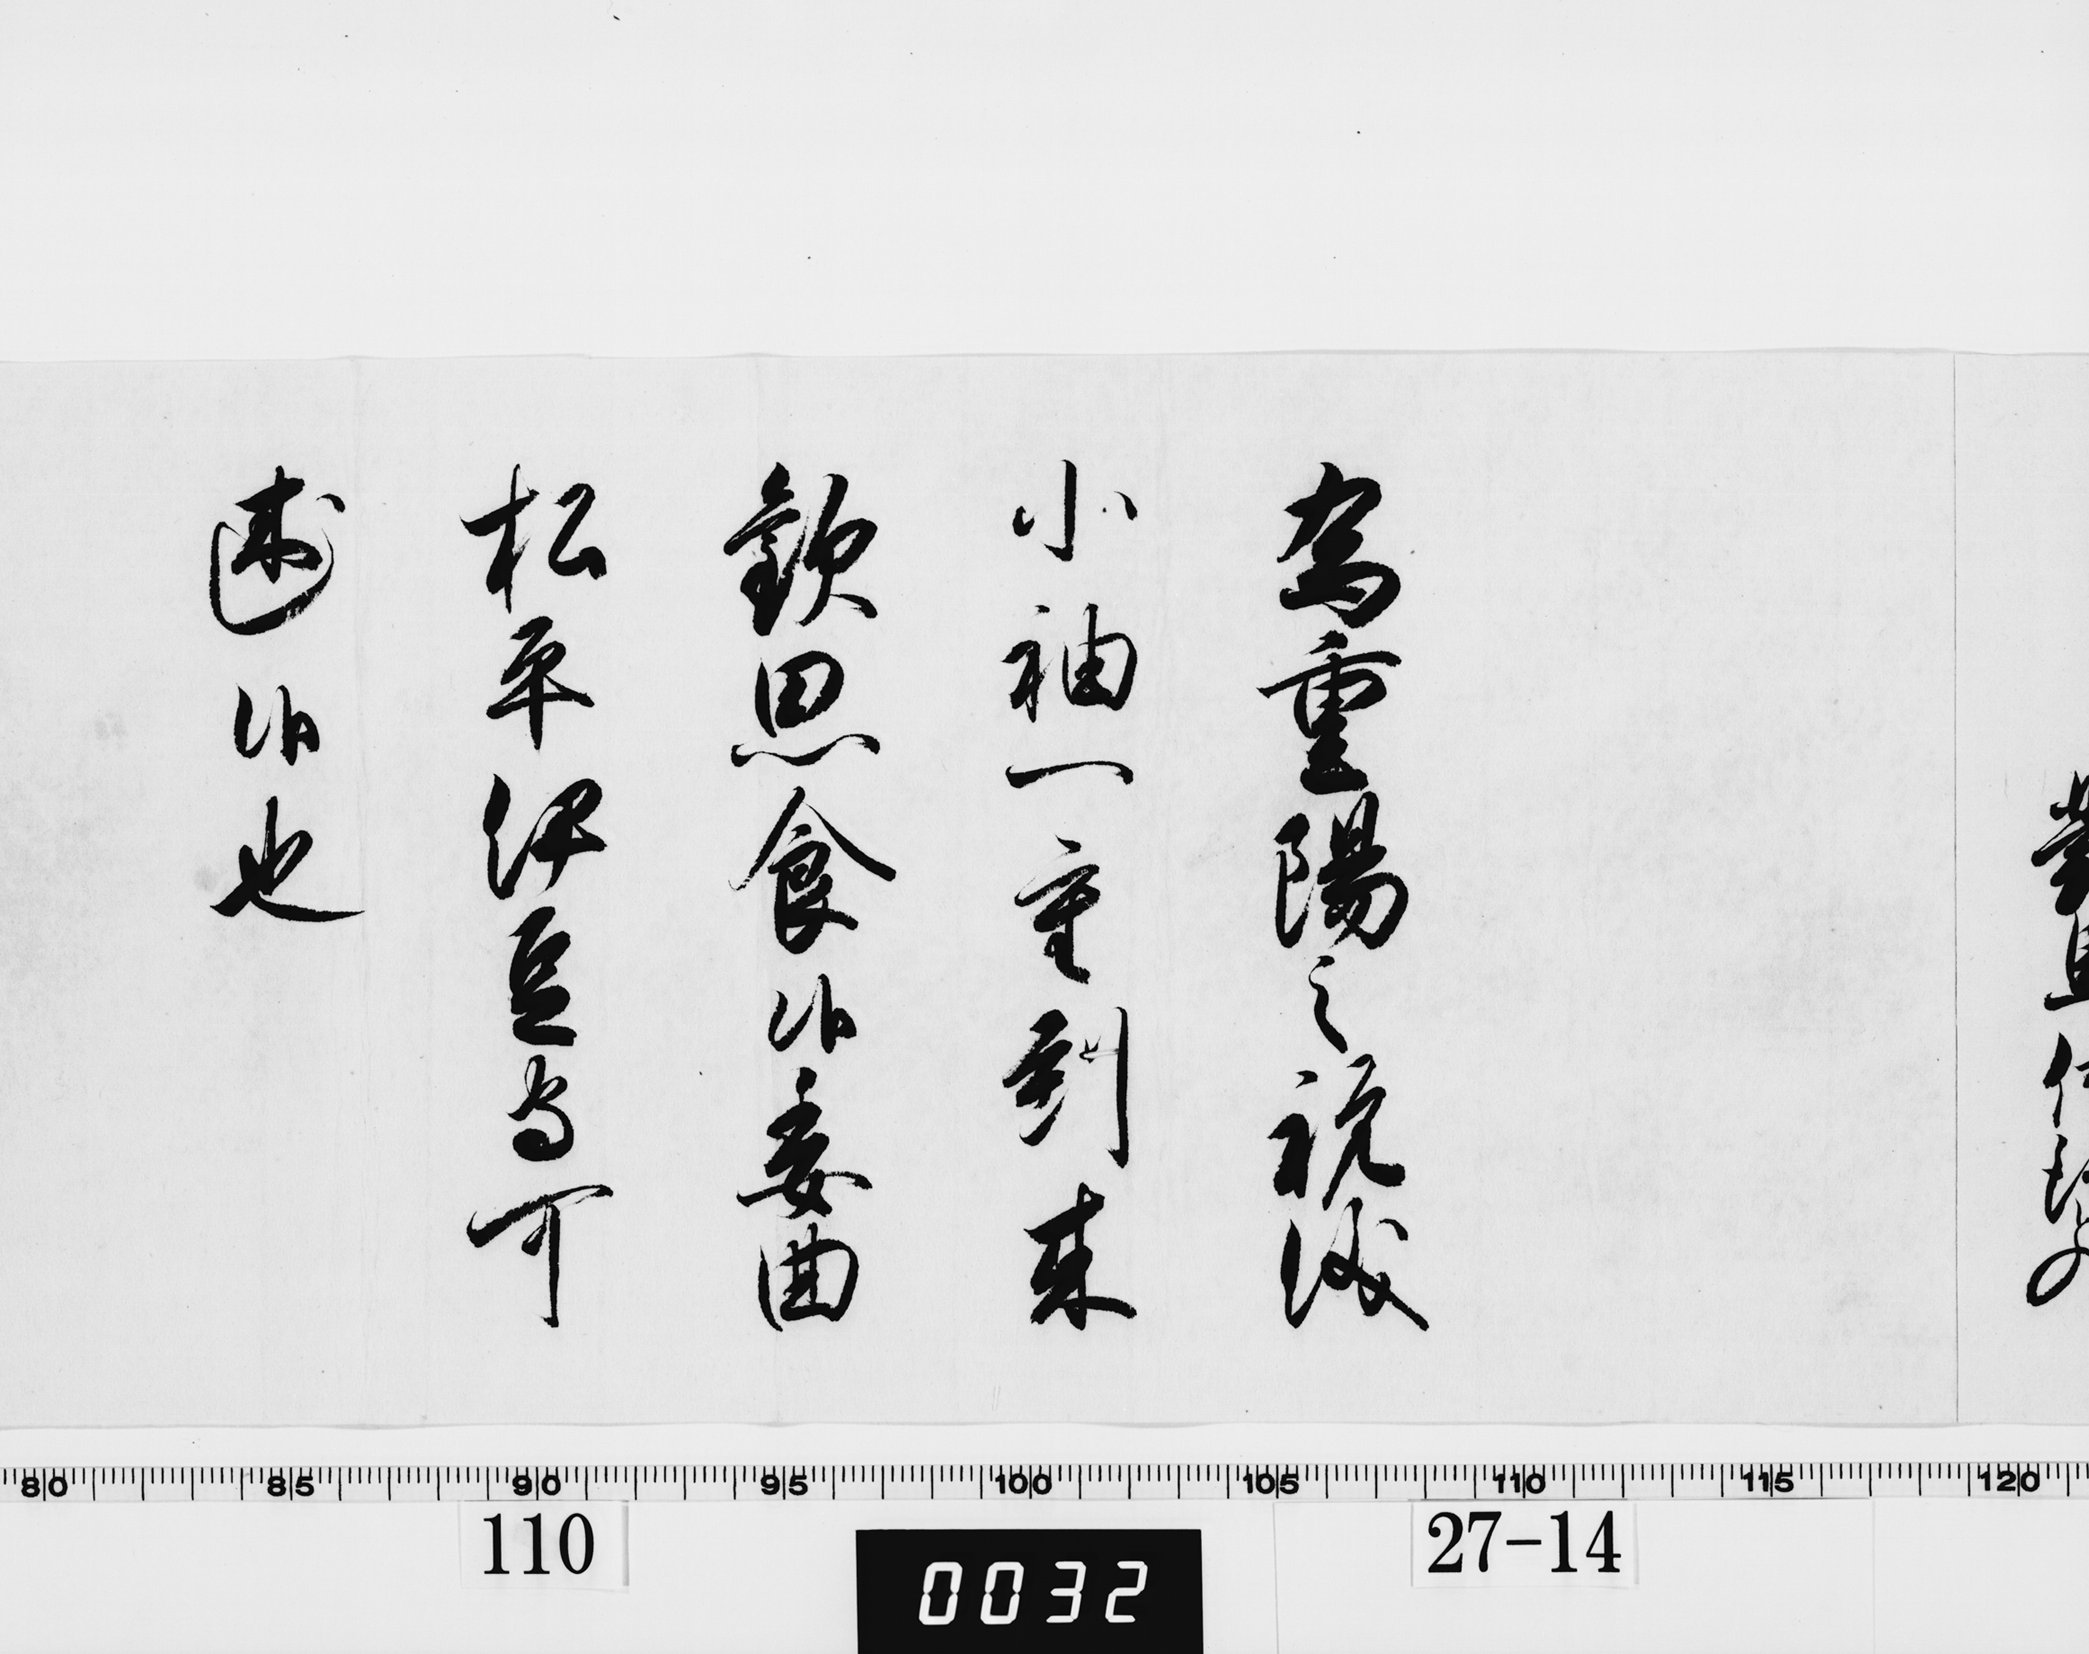 為重陽之祝儀
小袖一重到来
歓思食候委曲
松平伊豆守可
述候也
80 85 90 95 100 105 110 115 120
110
0032
27-14